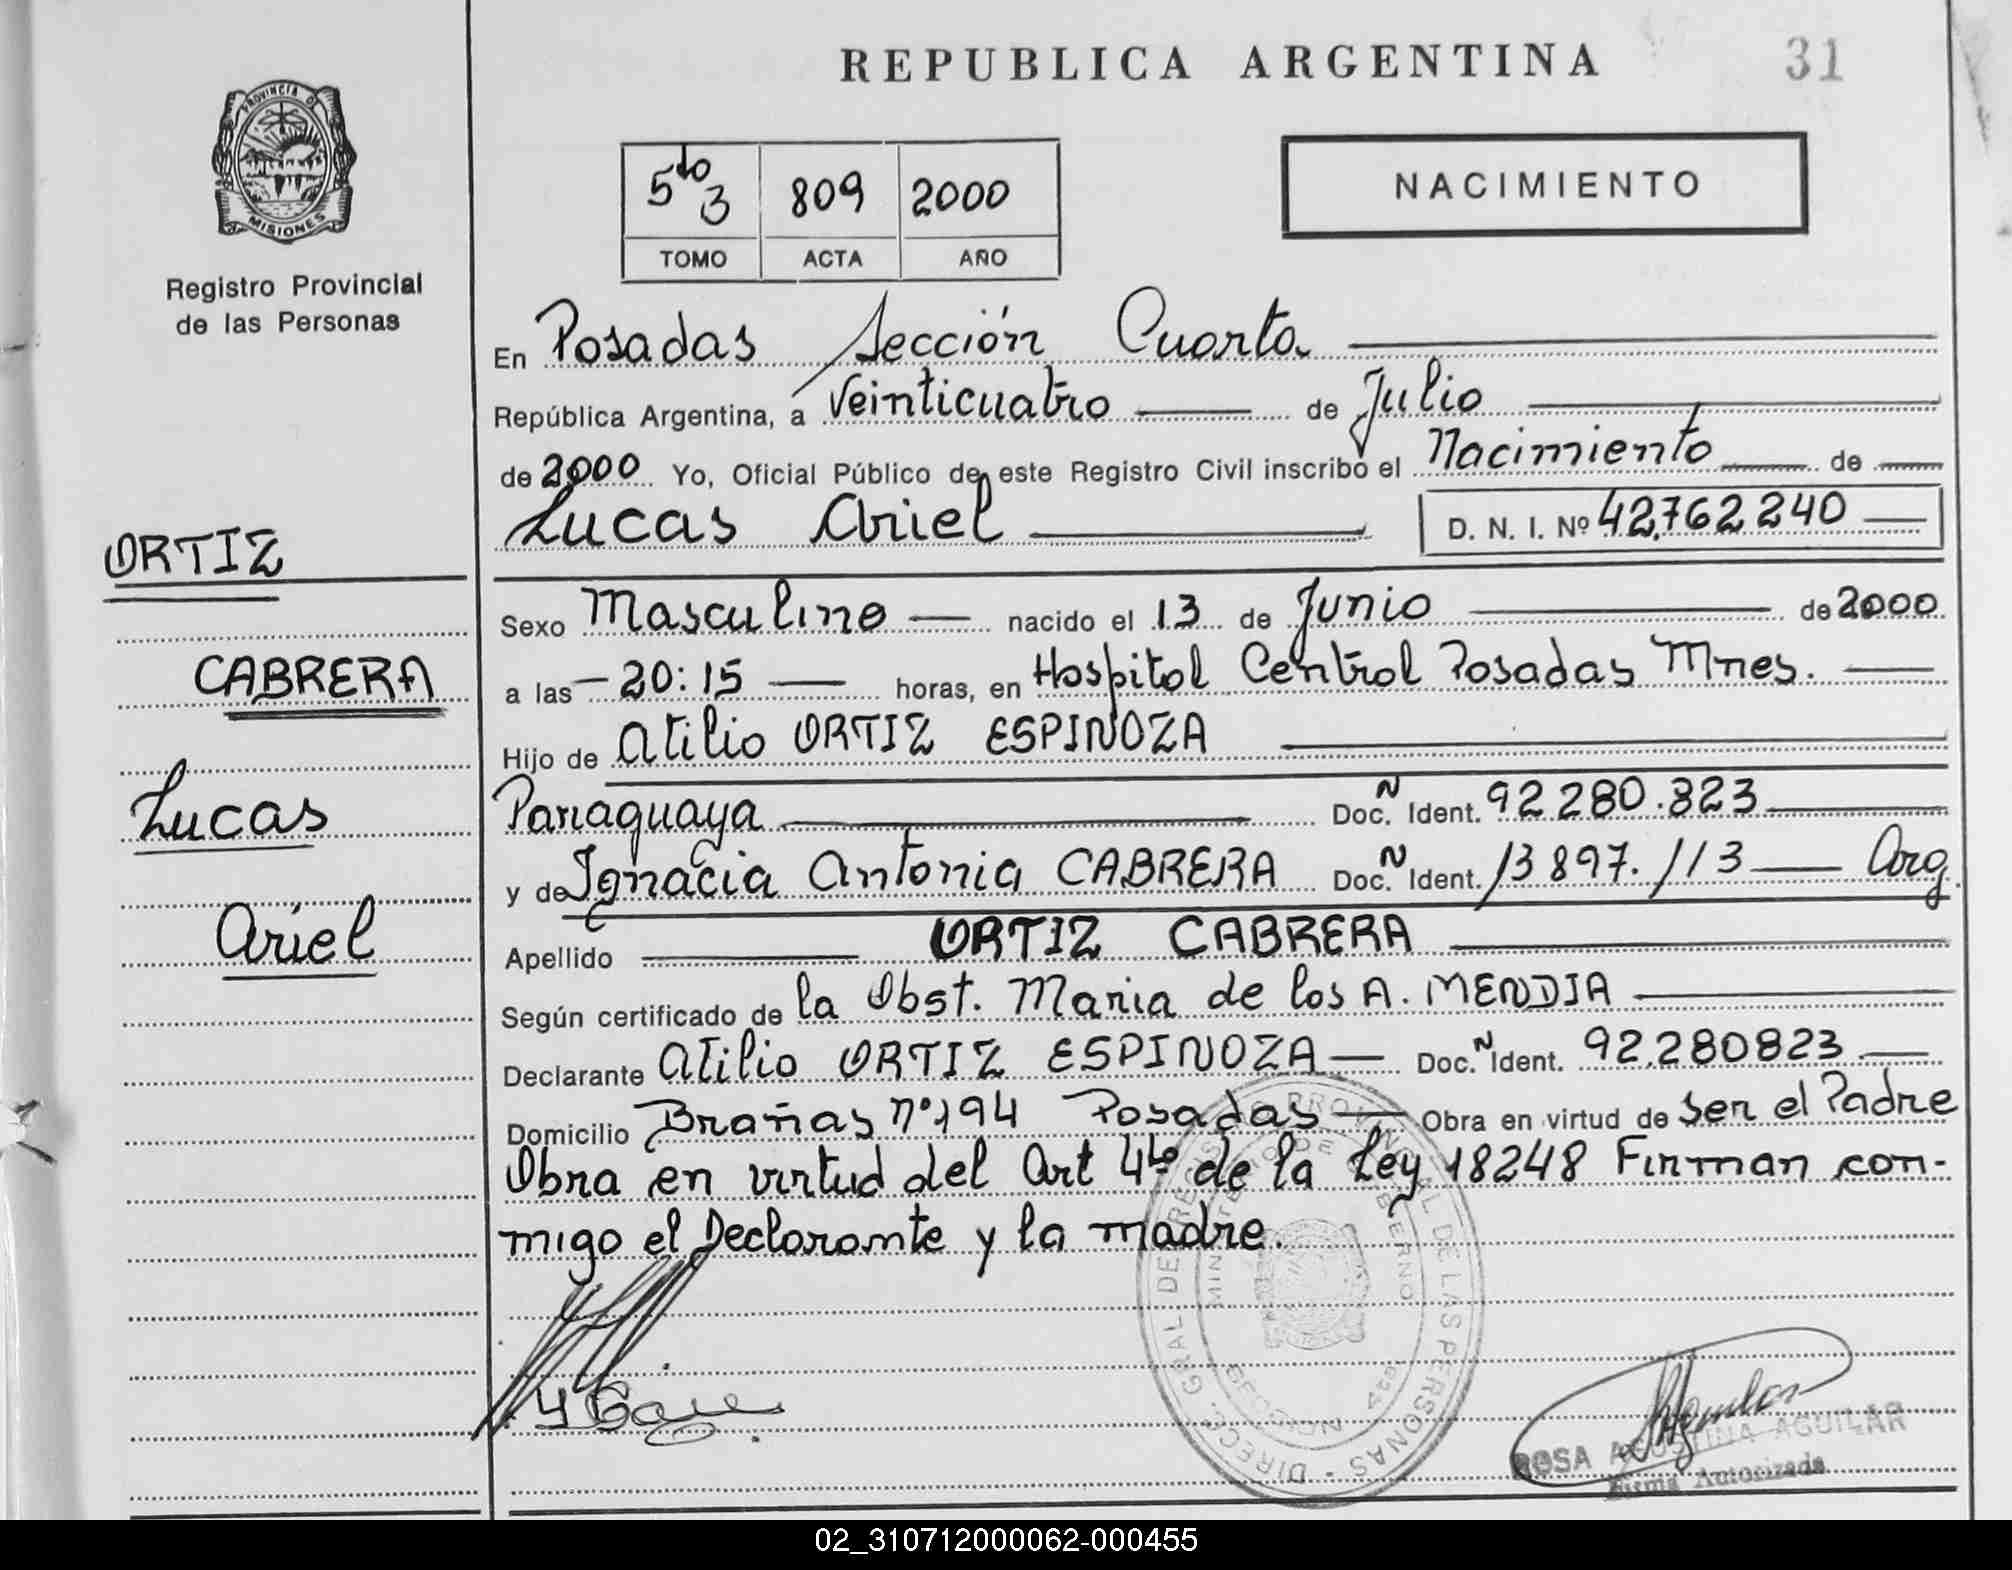 REPUBLICA ARGENTINA
31
PROVINCIA DE
MISIONES
Registro Provincial
de las Personas
5to 3 809 2000
TOMO ACTA AÑO
NACIMIENTO
En Posadas Sección Cuarta
República Argentina, a Veinticuatro de Julio
de 2000 Yo, Oficial Público de este Registro Civil inscribo el Nacimiento de
Lucas Ariel D. N. I. Nº 42.762.240
ORTIZ
CABRERA
Lucas
Ariel
Sexo Masculino nacido el 13 de Junio de 2000
a las 20:15 horas, en Hospital Central Posadas Mnes.
Hijo de Atilio ORTIZ ESPINOZA
Paraguaya Doc. N Ident. 92.280.823
y de Ignacia Antonia CABRERA Doc. N Ident. 13.897.113 Arg.
Apellido ORTIZ CABRERA
Según certificado de la Obst. Maria de los A. MENDIA
Declarante Atilio ORTIZ ESPINOZA Doc. N Ident. 92.280823
Domicilio Brañas nº 194 Posadas Obra en virtud de ser el Padre
Obra en virtud del Art 4to de la Ley 18248 Firman con-
migo el Declarante y la madre.
DIRECC. GRAL DE REGISTRO PROVINCIAL DE LAS PERSONAS
MINISTERIO DE GOBIERNO
ROSA AGUSTINA AGUILAR
Firma Autorizada
02_310712000062-000455